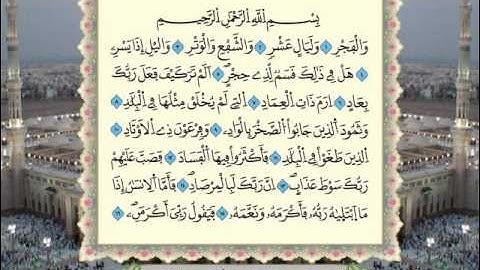 بِسْمِ اللَّهِ الرَّحْمَٰنِ الرَّحِيمِ
وَالْفَجْرِ وَلَيَالٍ عَشْرٍ وَالشَّفْعِ وَالْوَتْرِ وَاليْلِ إِذَا يَسْرِۦ
هَلْ فِي ذَٰلِكَ قَسَمٌ لِّذِي حِجْرٍ أَلَمْ تَرَ كَيْفَ فَعَلَ رَبُّكَ
بِعَادٍ إِرَمَ ذَاتِ الْعِمَادِ التِي لَمْ يُخْلَقْ مِثْلُهَا فِي الْبِلَٰدِ
وَثَمُودَ الذِينَ جَابُوا الصَّخْرَ بِالْوَادِ وَفِرْعَوْنَ ذِي الْأَوْتَادِ
الذِينَ طَغَوْا فِي الْبِلَٰدِ فَأَكْثَرُوا فِيهَا الْفَسَادَ فَصَبَّ عَلَيْهِمْ
رَبُّكَ سَوْطَ عَذَابٍ إِنَّ رَبَّكَ لَبِالْمِرْصَادِ فَأَمَّا الْإِنسَٰنُ إِذَا
مَا ابْتَلَيٰهُ رَبُّهُۥ فَأَكْرَمَهُۥ وَنَعَّمَهُۥ فَيَقُولُ رَبِّيَ أَكْرَمَنِۦ